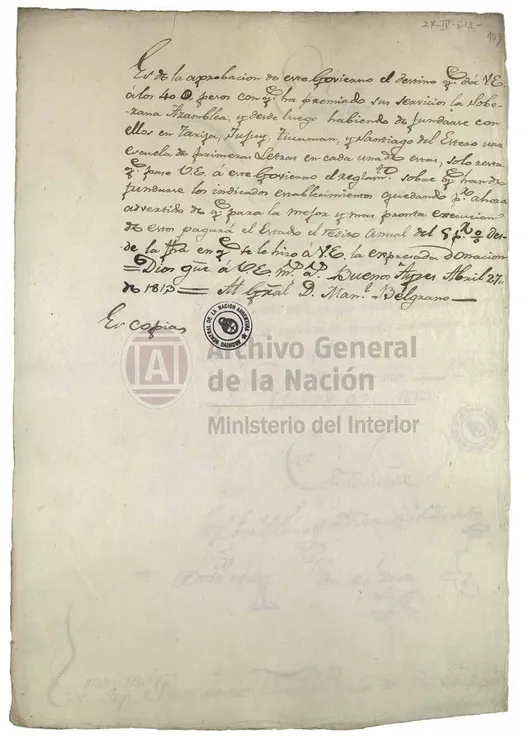 27-IV-813-
107
Es de la aprobacion de este Govierno el destino q.e dá V.E.
á los 40.0 pesos con q.e ha premiado sus servicios la Sobe-
rana Asamblea, y desde luego habiendo de fundarse con
ellos en Tarija, Jujuy, Tucuman, y Santiago del Estero una
escuela de primeras Letras en cada una de esas, solo resta
q.e pase V.E. á este Govierno el reglam.to sobre q.e han de
fundarse los indicados establecimientos quedando p.r ahora
advertido de q.e para la mejor y mas pronta execucion
de estos pagará el Estado el redito anual del 5 p.r % des-
de la fha en q.e se le hizo á V.E. la expresada donacion
= Dios gue á V.E. m.s a.s Buenos Ayres Abril 27
de 1813 = Al Gral D. Man.l Belgrano —
Es copia
ARCHIVO GENERAL DE LA NACION ARGENTINA
Archivo General
de la Nación
Ministerio del Interior